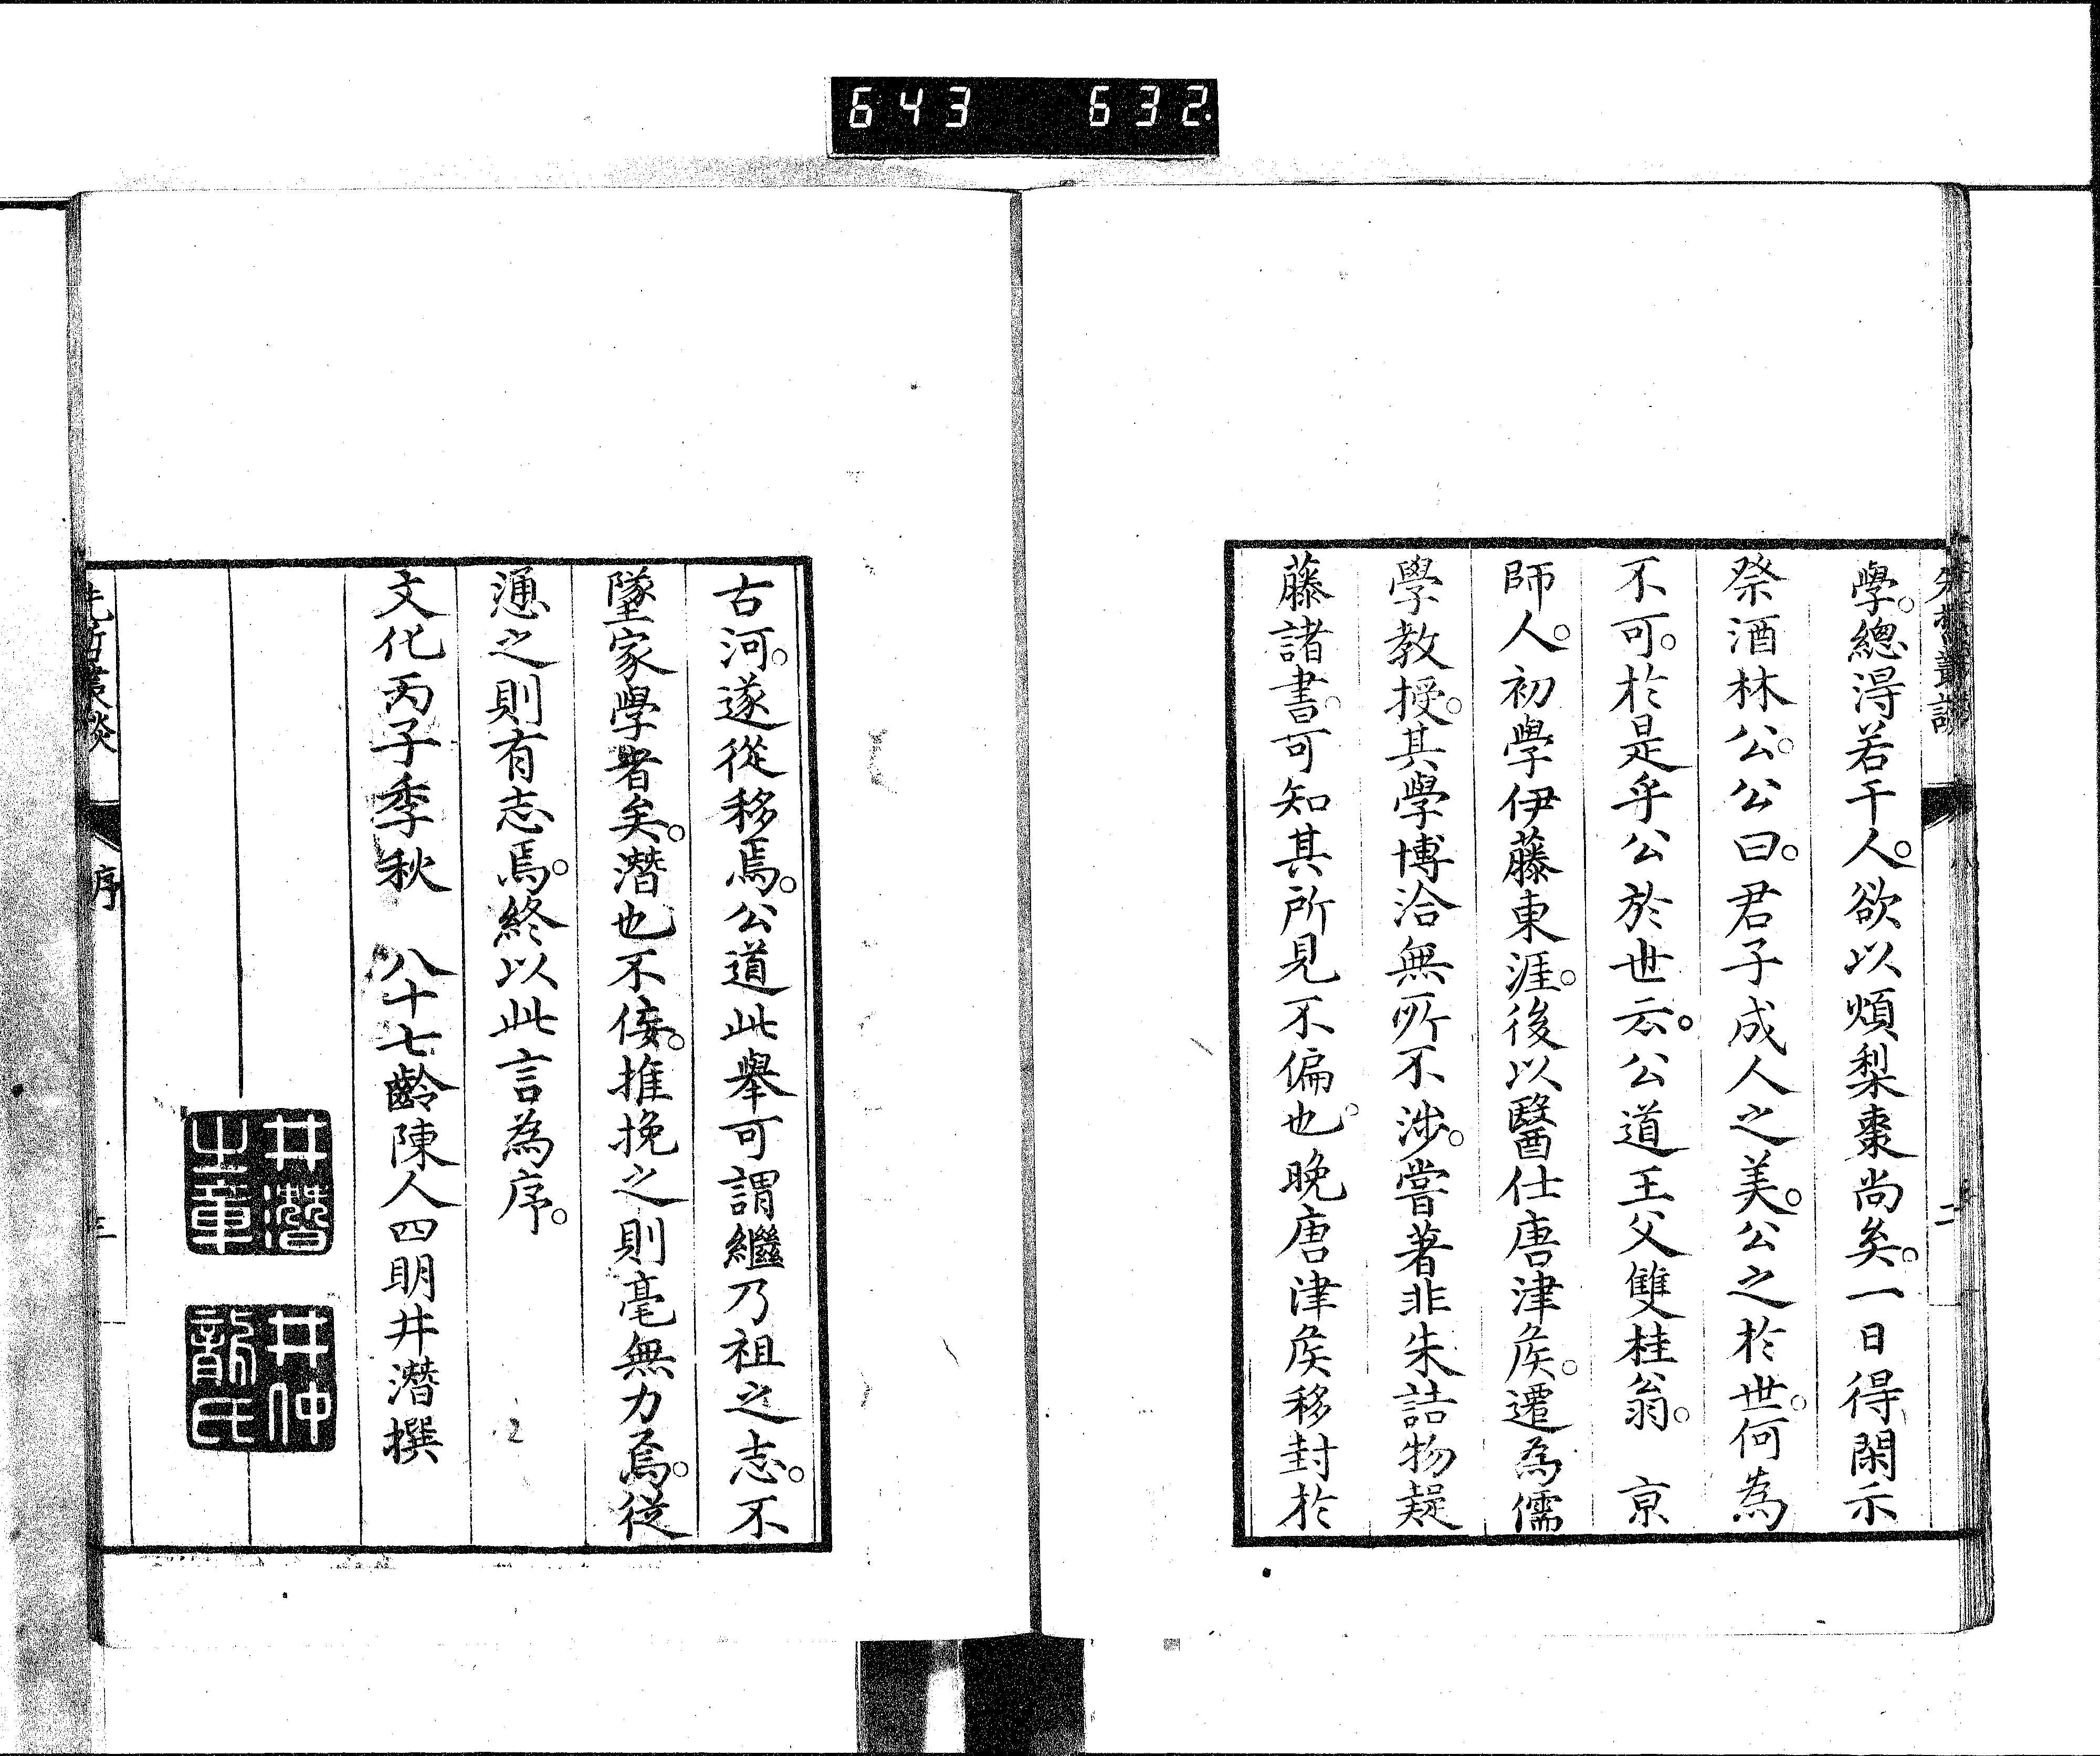 643 632.
先哲叢談
二
學。總淂若干人。欲以煩梨棗尚矣。一日得閑示
祭酒林公。公曰。君子成人之美。公之於世。何為
不可。於是乎公於世云。公道王父雙桂翁。 京
師人。初學伊藤東涯。後以醫仕唐津侯。遷為儒
學教授。其學博洽無所不涉。嘗著非朱詰物疑
藤諸書。可知其所見不偏也。晚唐津侯移封於
古河。遂從移焉。公道此舉可謂繼乃祖之志。不
墜家學者矣。潛也不佞。推挽之則毫無力焉。従
慂之則有志焉。終以此言為序。
文化丙子季秋 八十七齡陳人四明井潛撰
井潛
士章
井仲
龍氏
先哲叢談
序
三